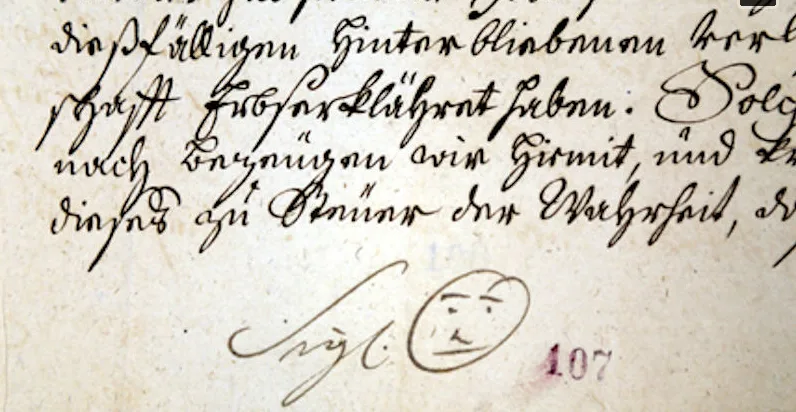 dießfälligen Hinterbliebenen Verl
schafft Erbserklähret haben: Solc
nach bezeügen wir hiemit, und kr
dieses zu Steüer der Wahrheit, da
Sigl.
107